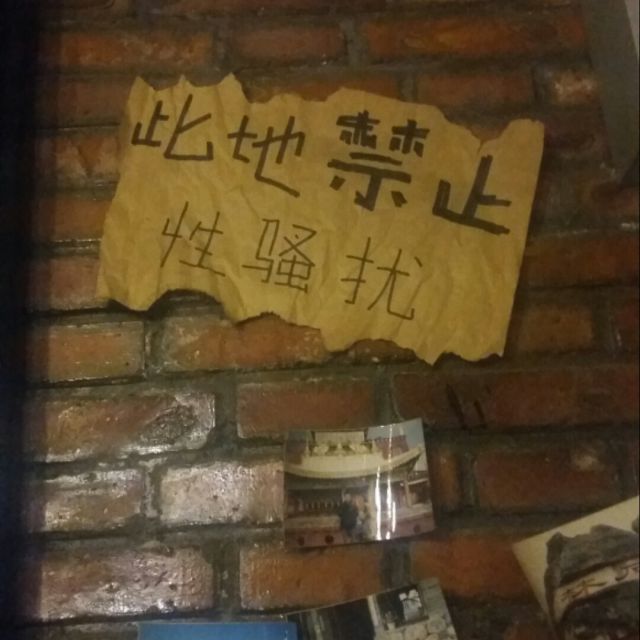 此地禁止
性骚扰